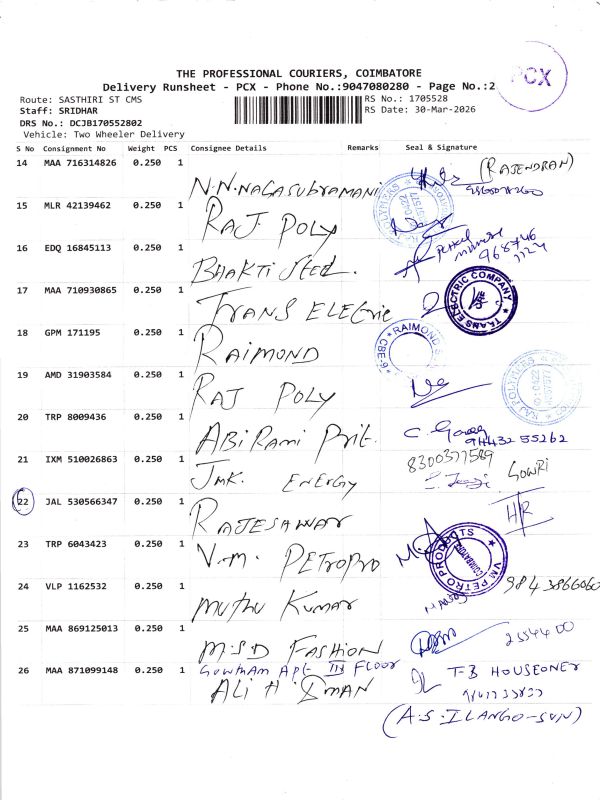 PCX
THE PROFESSIONAL COURIERS, COIMBATORE
Delivery Runsheet - PCX - Phone No.:9047080280 - Page No.:2
Route: SASTHIRI ST CMS
RS No.: 1705528
Staff: SRIDHAR
RS Date: 30-Mar-2026
DRS No.: DCJB170552802
Vehicle: Two Wheeler Delivery
S No Consignment No Weight PCS Consignee Details Remarks Seal & Signature
14 MAA 716314826 0.250 1
N.N.NAGASUBRAMANI (RAJENDRAN)
15 MLR 42139462 0.250 1
RAJ POLY
16 EDQ 16845113 0.250 1
BHAKTI STEEL.
17 MAA 710930865 0.250 1
TRANS ELECTRIC
TRANS ELECTRIC COMPANY
18 GPM 171195 0.250 1
RAIMOND
RAIMOND
19 AMD 31903584 0.250 1
RAJ POLY
RAJ POLYMERS
20 TRP 8009436 0.250 1
ABIRAMI Prit. 9443255262
21 IXM 510026863 0.250 1
JMK. ENERGY 8300377589 GOWRI
22 JAL 530566347 0.250 1
RAJESAWAR H/R
23 TRP 6043423 0.250 1
V.M. PETROPRO
VM PETRO PRODUCTS COIMBATORE
24 VLP 1162532 0.250 1
MUTHU KUMAR 9843866060
25 MAA 869125013 1
M.S.D FASHION 2544400
26 MAA 871099148 0.250 1
GOWTHAM APt- III FLOOR
ALI H. SMAN
T-B HOUSEONER
(A.S. ILANGO-SUN)